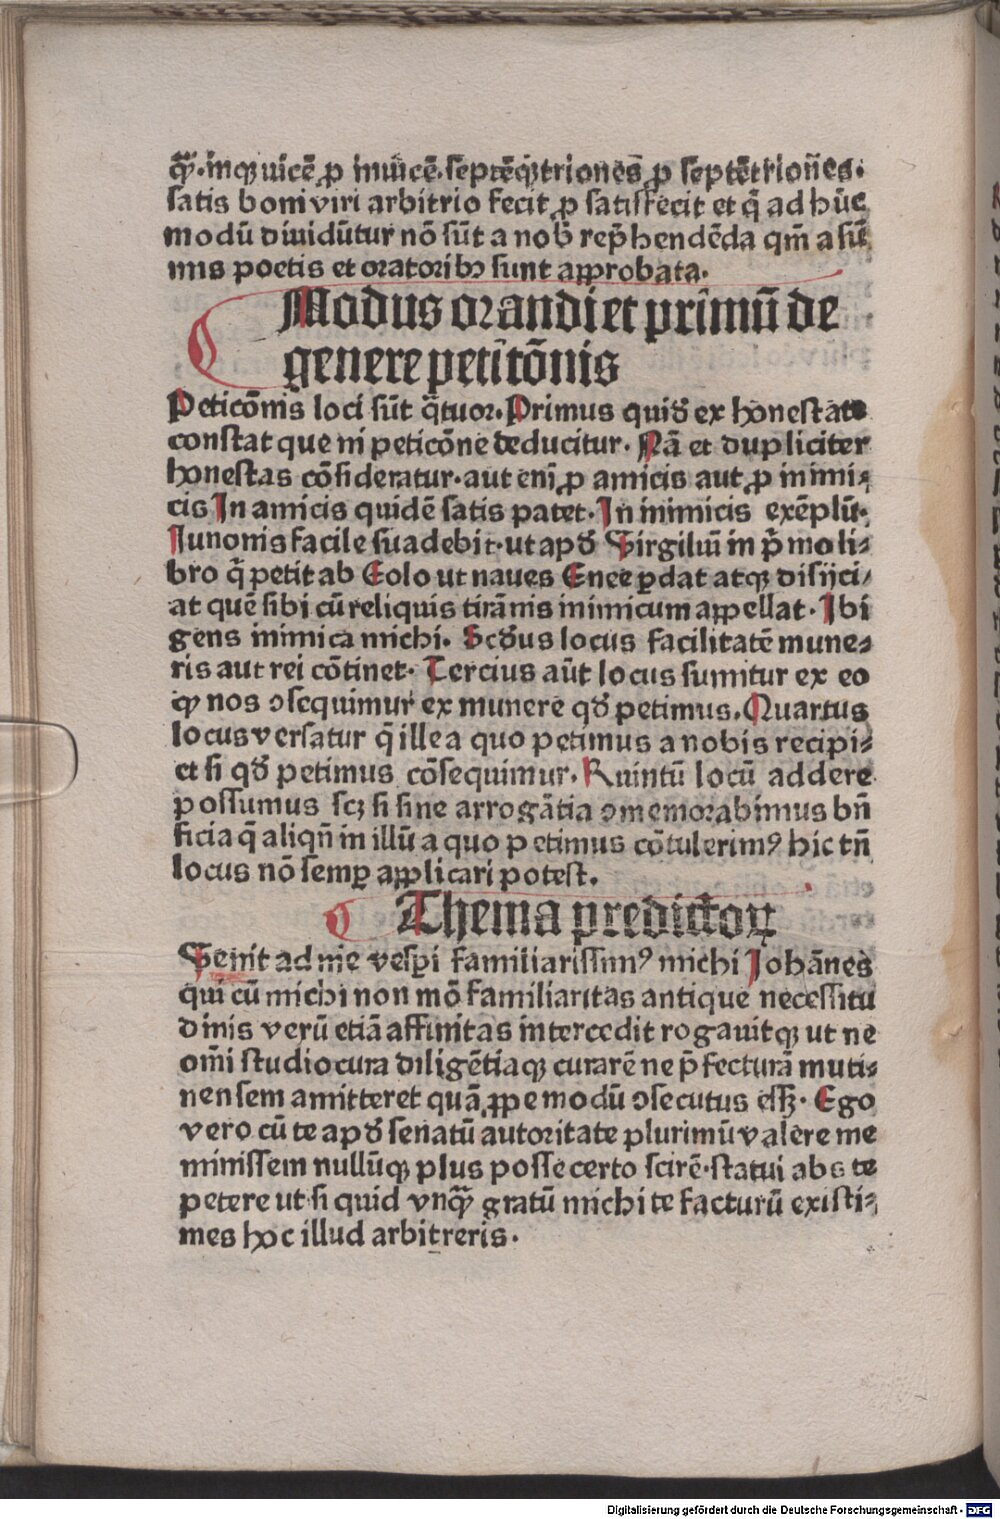 q̄ꝫ.inqꝫ uicē ꝓ inuicē.septēqꝫtriones ꝓ septētrion̄es.
satis boni viri arbitrio fecit ꝓ satisfecit et q̄ ad hūc
modū diuidūtur nō sūt a nob̄ rep̄hendēda qm̄ a sū
mis poetis et oratoribꝫ sunt aꝓprobata.
Modus orandi et primū de
genere petitōnis
Peticōnis loci sūt q̄tuor. Primus quid' ex honestate
constat que in peticōne deducitur. Nā et dupliciter
honestas cōsideratur. aut eni ꝓ amicis aut ꝓ inimi⸗
cis In amicis quidē satis patet. In inimicis exēplū.
Iunonis facile suadebit. ut apd' Virgiliū in p̄mo li⸗
bro q̄ petit ab Eolo ut naues Enee ꝑdat atqꝫ disijci⸗
at quē sibi cū reliquis tirānis inimicum appellat. Ibi
gens inimica michi. Scd'us locus facilitatē mune⸗
ris aut rei cōtinet. Tercius aūt locus sumitur ex eo
ꝙ nos ↄsequimur ex munere qd' petimus. Quartus
locus versatur q̄ ille a quo petimus a nobis recipi⸗
et si qd' petimus cōsequimur. Quintū locū addere
possumus scꝫ si sine arrogātia ↄmemorabimus bn̄
ficia q̄ aliqn̄ in illū a quo petimus cōtulerimꝰ hic tn̄
locus nō semꝑ applicari potest.
Thema predictoꝝ
Venit ad me vesꝑi familiarissimꝰ michi Johānes
qui cū michi non mō familiaritas antique necessitu
dinis verū etiā affinitas intercedit rogauitqꝫ ut ne
om̄i studio cura diligētiaqꝫ curarē ne p̄fecturā muti⸗
nensem amitteret quā ꝓpe modū ↄsecutus essꝫ. Ego
vero cū te apd' senatū autoritate plurimū valere me
minissem nullūqꝫ plus posse certo scirē. statui abs te
petere ut. si quid vnq̄ꝫ gratū michi te facturū existi⸗
mes hoc illud arbitreris.
Digitalisierung gefördert durch die Deutsche Forschungsgemeinschaft - DFG